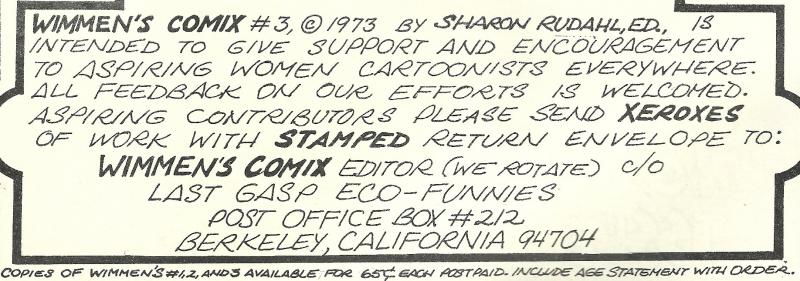 WIMMEN'S COMIX #3, © 1973 BY SHARON RUDAHL, ED., IS
INTENDED TO GIVE SUPPORT AND ENCOURAGEMENT
TO ASPIRING WOMEN CARTOONISTS EVERYWHERE.
ALL FEEDBACK ON OUR EFFORTS IS WELCOMED.
ASPIRING CONTRIBUTORS PLEASE SEND XEROXES
OF WORK WITH STAMPED RETURN ENVELOPE TO:
WIMMEN'S COMIX EDITOR (WE ROTATE) C/O
LAST GASP ECO-FUNNIES
POST OFFICE BOX #212
BERKELEY, CALIFORNIA 94704
COPIES OF WIMMEN'S #1, 2, AND 3 AVAILABLE FOR 65¢ EACH POSTPAID. INCLUDE AGE STATEMENT WITH ORDER.